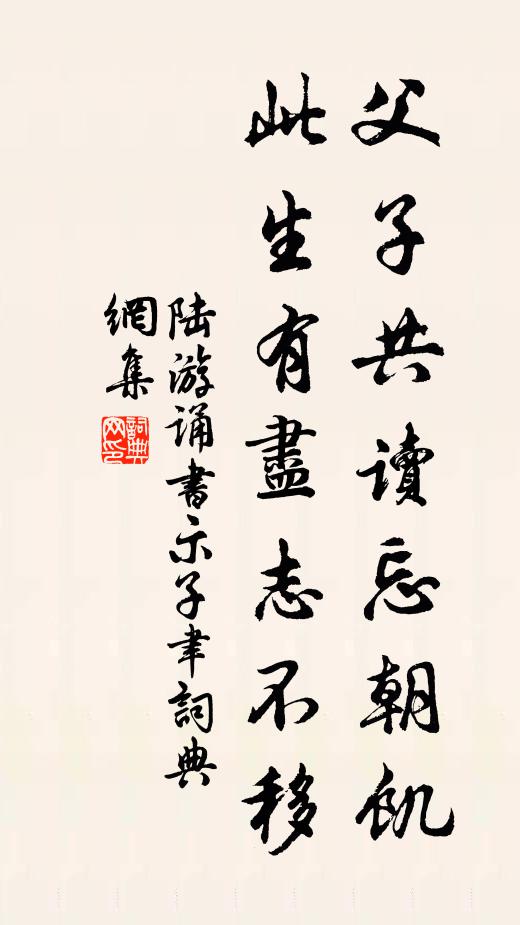 父子共讀忘朝飢
此生有盡志不移
陆游诵書示子聿詞典
網集
詞典
网印